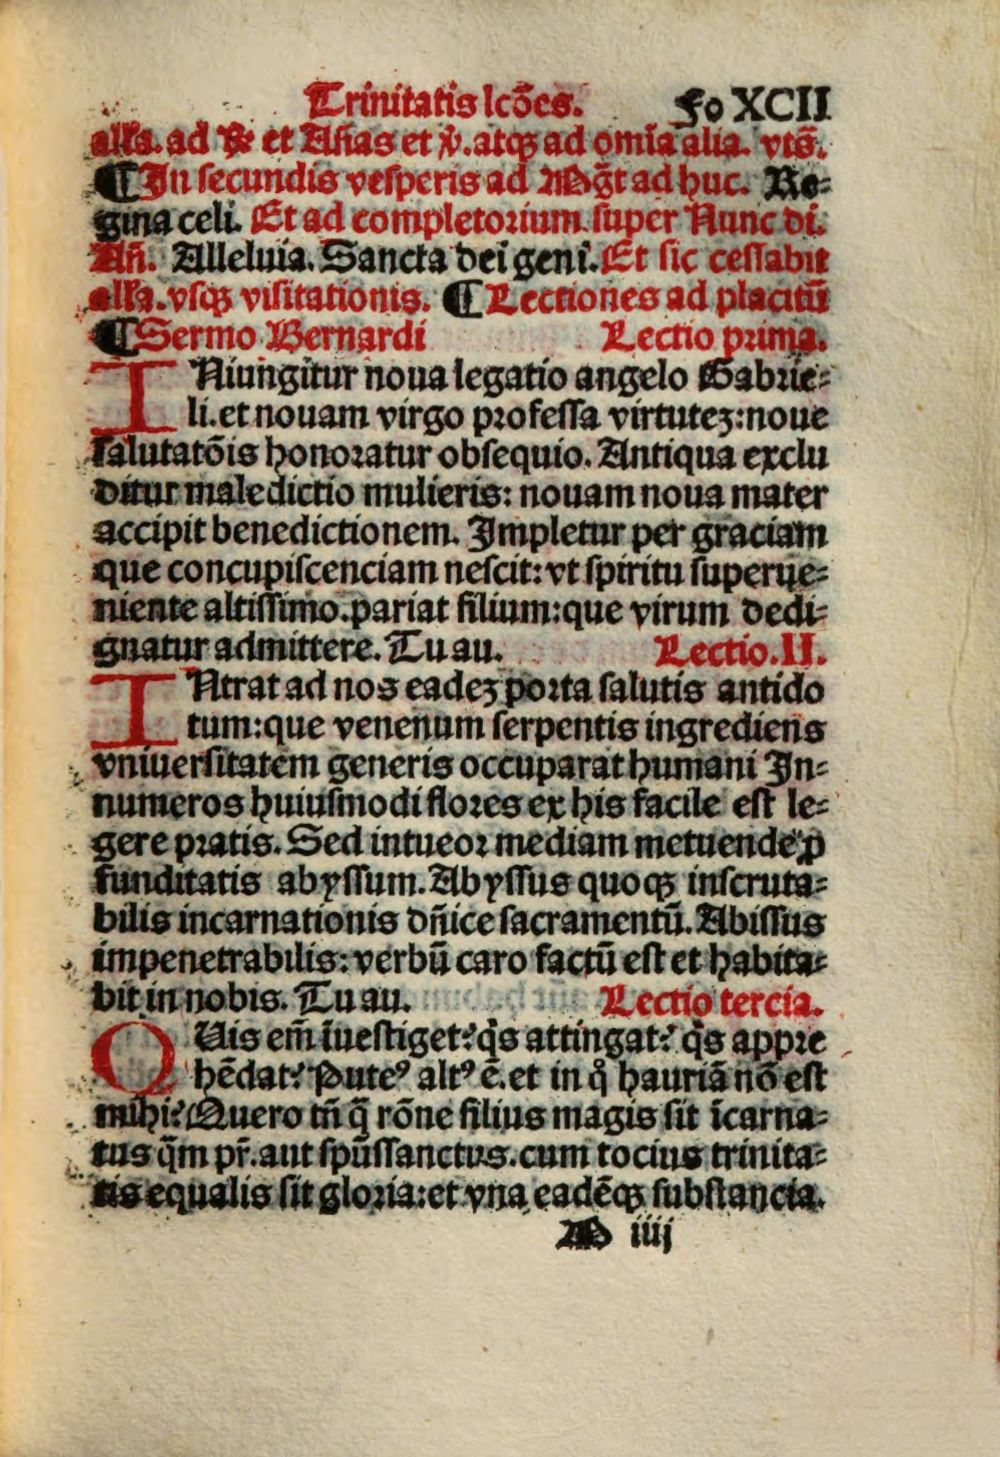 Trinitatis lcōes. Fo XCII
alla. ad R̃ et Añas et v̓. atqꝫ ad omīa alia. vts̄.
¶ In secundis vesperis ad Mḡt ad huc. Re-
gina celi. Et ad completorium super Nunc di.
Añ. Alleluia. Sancta dei geni. Et sic cessabit
alla. vsqꝫ visitationis. ¶ Lectiones ad placitū
¶ Sermo Bernardi Lectio prima.
INiungitur noua legatio angelo Gabrie-
li. et nouam virgo professa virtuteꝫ: noue
salutatōis honoratur obsequio. Antiqua exclu
ditur maledictio mulieris: nouam noua mater
accipit benedictionem. Impletur per graciam
que concupiscenciam nescit: vt spiritu superue-
niente altissimo. pariat filium: que virum dedi-
gnatur admittere. Tu au. Lectio. II.
INtrat ad nos eadeꝫ porta salutis antido
tum: que venenum serpentis ingrediens
vniuersitatem generis occuparat humani In-
numeros huiusmodi flores ex his facile est le-
gere pratis. Sed intueor mediam metuende ꝓ
funditatis abyssum. Abyssus quoqꝫ inscruta-
bilis incarnationis dñice sacramentū. Abissus
impenetrabilis: verbū caro factū est et habita-
bit in nobis. Tu au. Lectio tercia.
QUis em̄ īuestiget? q̓s attingat? q̓s appre
hēdat? Puteꝰ altꝰ ē. et in q̊ hauriā nō est
mihi? Quero tñ q̄ rōne filius magis sit īcarna-
tus q̄m pr̄. aut spūssanctus. cum tocius trinita-
tis equalis sit gloria: et vna eadēqꝫ substancia.
M iiij